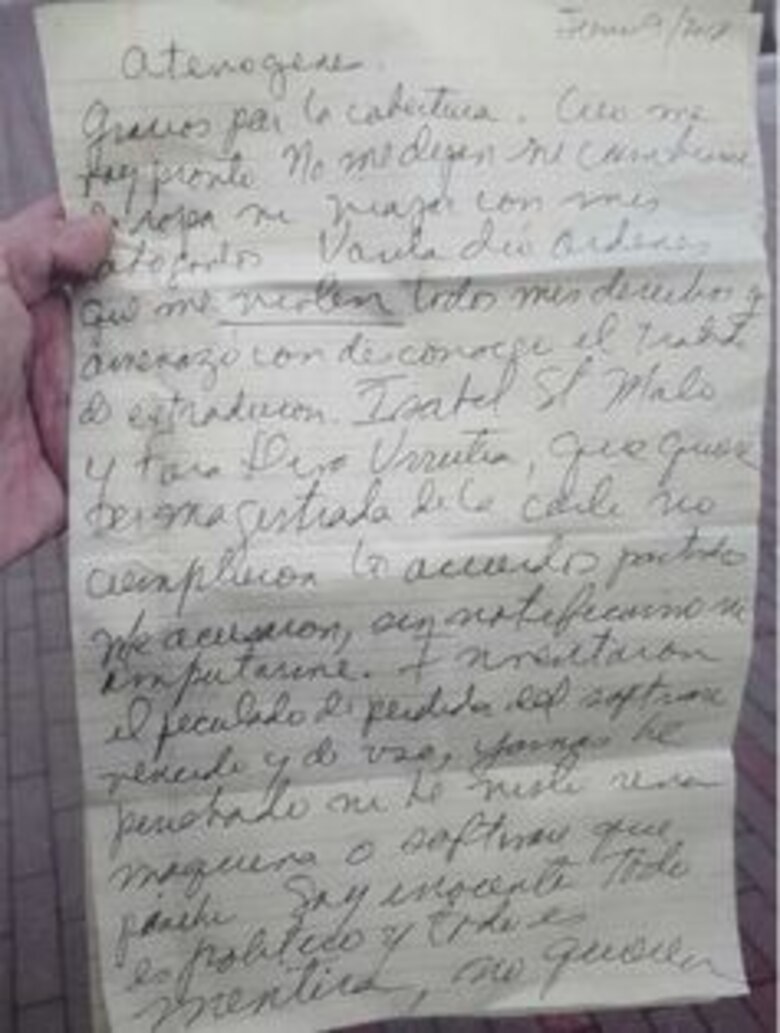 Atenogene.
Gracias por la cobertura. Creo me
hoy pronto No me dejen ni cambiarme
ropa ni viajar con mis
abogados Varela dio ordenes
que me violen todos mis derechos y
amenazó con desconocer el
de extradicion. Isabel St Malo
y Urrutia, que quiere
ser magistrada de la corte no
cumplieron acuerdos
Me acusaron, sin notificarme ni
imputarme. Inventaron
el peculado de perdida del software
vencido y de uso, jamas he
pinchado ni he visto una
maquina o software que
pinche Soy inocente Todo
es politico y todo es
mentira, no quieren